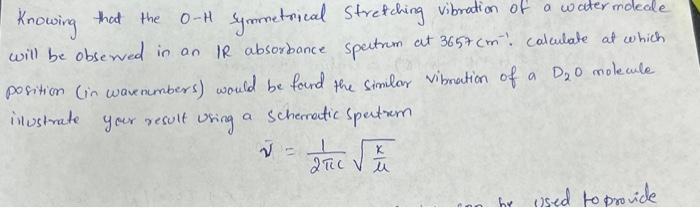 Knowing that the O-H Symmetrical Stretching vibration of a water molecule
will be observed in an IR absorbance spectrum at 3657 cm⁻¹. calculate at which
position (in wavenumbers) would be found the similar vibration of a D₂O molecule
illustrate your result using a schematic spectrum
ν̄ = 1/2πc √K/μ
can be used to provide